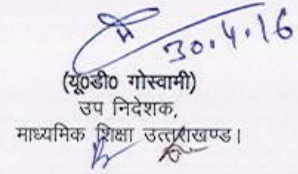 30.4.16
(यू0डी0 गोस्वामी)
उप निदेशक,
माध्यमिक शिक्षा उत्तराखण्ड।